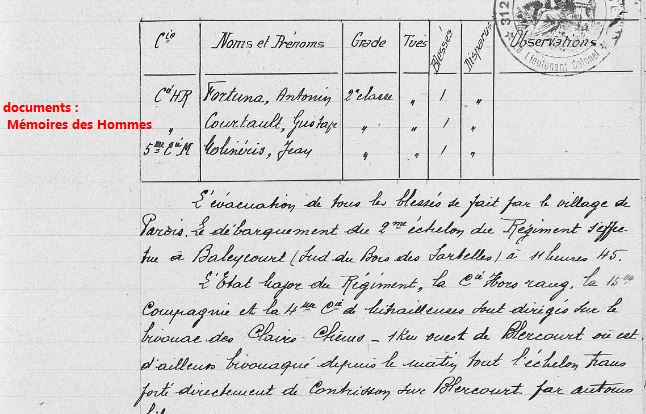 312
Lieutenant Colonel
Cie Noms et Prénoms Grade Tués Blessés Disparus Observations
documents :
Mémoires des Hommes
Cie HR Fortuna, Antonin 2e classe " 1 "
" Courtault, Gustave " " 1 "
5me Cie M Molinéris, Jean " " 1 "
L'évacuation de tous les blessés se fait par le village de
Parois. Le débarquement du 2me échelon du Régiment s'effec
tue à Baleycourt (Sud du Bois des Sartelles) à 11 heures 45.
L'Etat Major du Régiment, la Cie Hors rang, la 15me
Compagnie et la 4me Cie de Mitrailleuses sont dirigés sur le
bivouac des Clairs-Chênes - 1 Km ouest de Blercourt où est
d'ailleurs bivouaqué depuis le matin tout l'échelon trans
porté directement de Contrisson sur Blercourt par automo